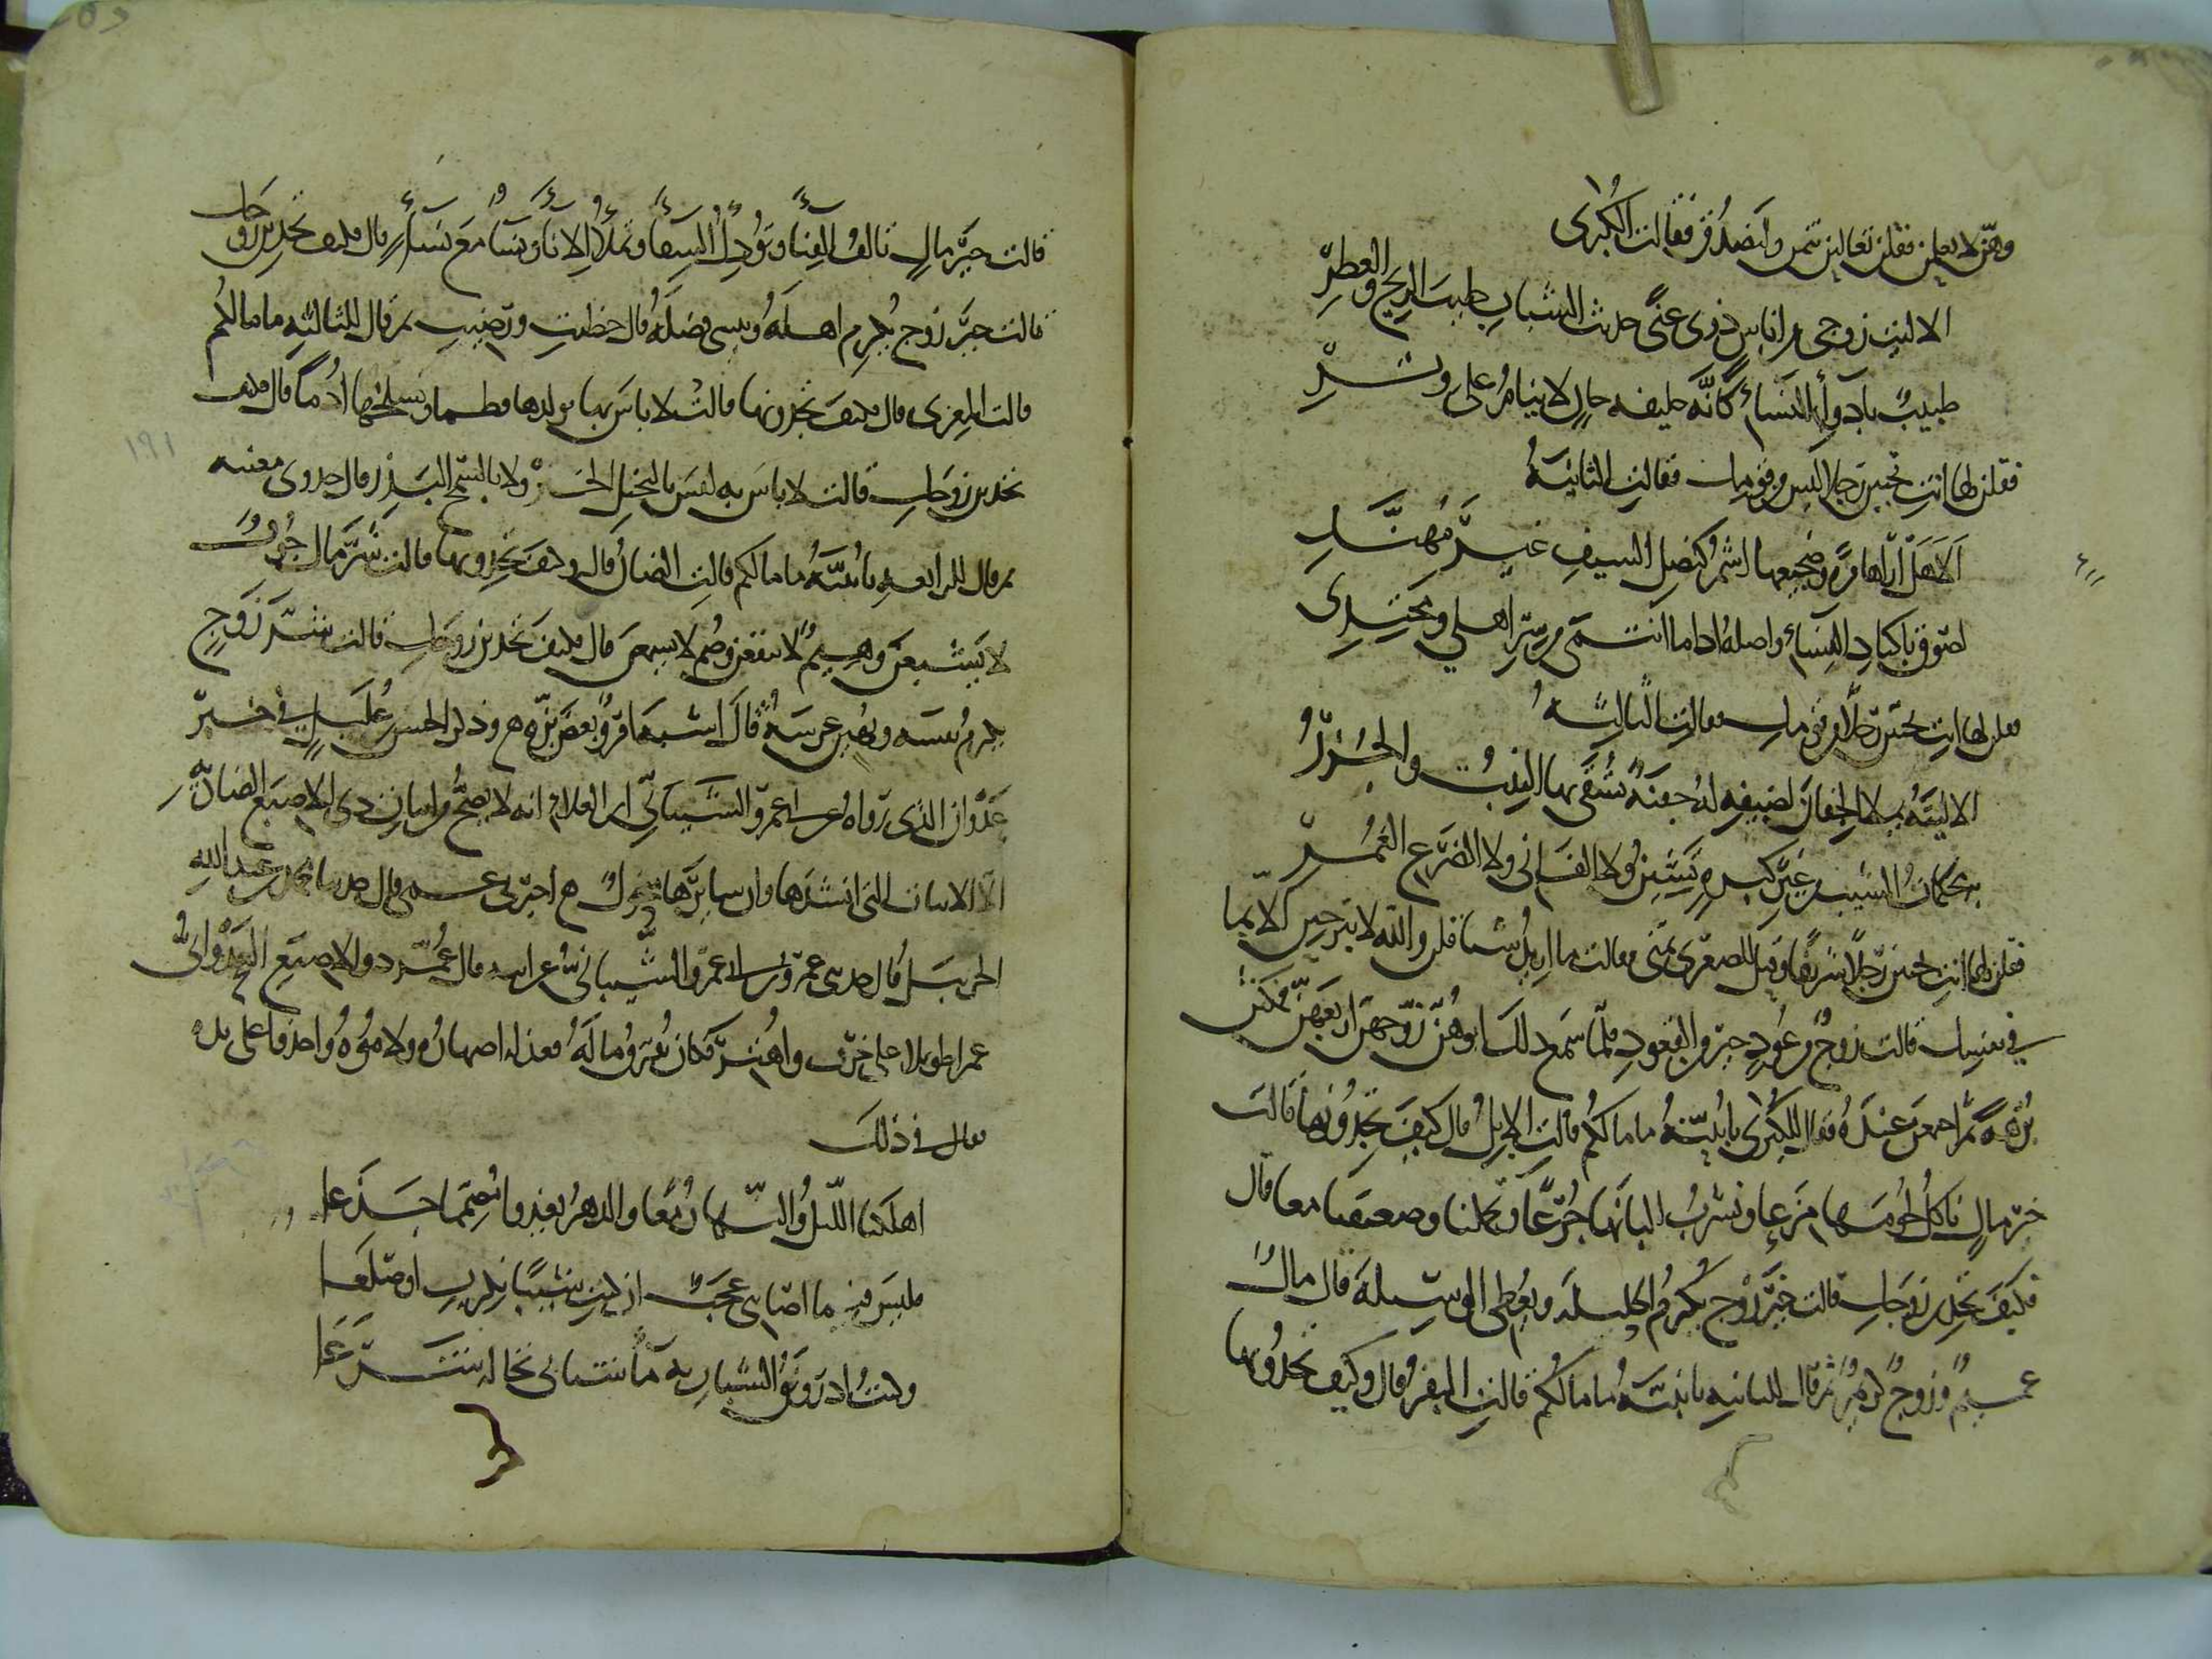 وهن لا يعلمن فقلن تعالين نتمن ولنصدق فقالت الكبرى
الا ليت زوجي من اناس ذوي غنى حديث الشباب طيب الريح والعطر
طبيب بادواء النساء كانه خليفة جان لا ينام على وتر
فقلن لها انت تحبين رجلا ليس من قومك فقالت الثانية
الا هل اراها مرة وضجيعها اشم كنصل السيف غير مهند
لصوق باكباد النساء واصله اذا ما انتمى من سر اهلي ومحتدي
فقلن لها انت تحبين رجلا من قومك فقالت الثالثة
الا ليته يملا الجفان لضيفه له جفنة تشقى بها النيب والجزر
به محكمات الشيب من غير كبرة تشين ولا الفاني ولا الضرع الغمر
فقلن لها انت تحبين رجلا شريفا وقيل للصغرى تمني فقالت ما اريد شيئا قلن والله لا تبرحين كلا بما
في نفسك قالت زوج من عود خير من القعود فلما سمع ذلك ابوهن زوجهن اربعهن فمكثن
برهة ثم اجتمعن عنده فقال للكبرى يا بنية ما مالكم قالت الابل قال كيف تجدونها قالت
خير مال ناكل لحومها مزعا ونشرب البانها جرعا وتحملنا وضعيفنا معا قال
فكيف تجدين زوجك قالت خير زوج يكرم الحليلة ويعطي الوسيلة قال مال
عميم وزوج كريم ثم قال للثانية يا بنية ما مالكم قالت البقر قال وكيف تجدونها
قالت خير مال تالف الفناء وتودك السقاء وتملا الاناء ونساء مع نساء قال فكيف تجدين زوجك
قالت خير زوج يكرم اهله وينسى فضله قال حظيت ورضيت ثم قال للثالثة ما مالكم
قالت المعزى قال فكيف تجدونها قالت لا باس بها نولدها فطما ونسلخها ادما قال فكيف
تجدين زوجك قالت لا باس به ليس بالبخيل الحتر ولا بالسمح البذر قال جدوى مغنية
ثم قال للرابعة يا بنية ما مالكم قالت الضان قال وكيف تجدونها قالت شر مال جوف
لا يشبعن وهيم لا ينقعن وصم لا يسمعن قال فكيف تجدين زوجك قالت شر زوج
يكرم نفسه ويهين عرسه قال اشبه امرؤ بعض بزه وذكر الحسن بن عليل في خبر
عدوان الذي رواه عن ابي عمرو الشيباني ابن العلاء انه لا يصح من ابيات ذي الاصبع الضادية
الا الابيات التي انشدها وان سايرها منحول اخبرني عمي قال حدثنا محمد بن عبدالله
الحزنبل قال حدثني عمرو بن ابي عمرو الشيباني عن ابيه قال عمر ذو الاصبع العدواني
عمرا طويلا حتى خرف واهتر وكان يفرق ماله فعذله اصهاره ولاموه واخذوا على يده
فقال في ذلك
اهلكنا الليل والنهار معا والدهر يعدو مصمما جذعا
فليس فيما اصابني عجب ان كنت شيبا انكرت او صلعا
وكنت اذ رونق الشباب به ماء شبابي تخاله شرعا